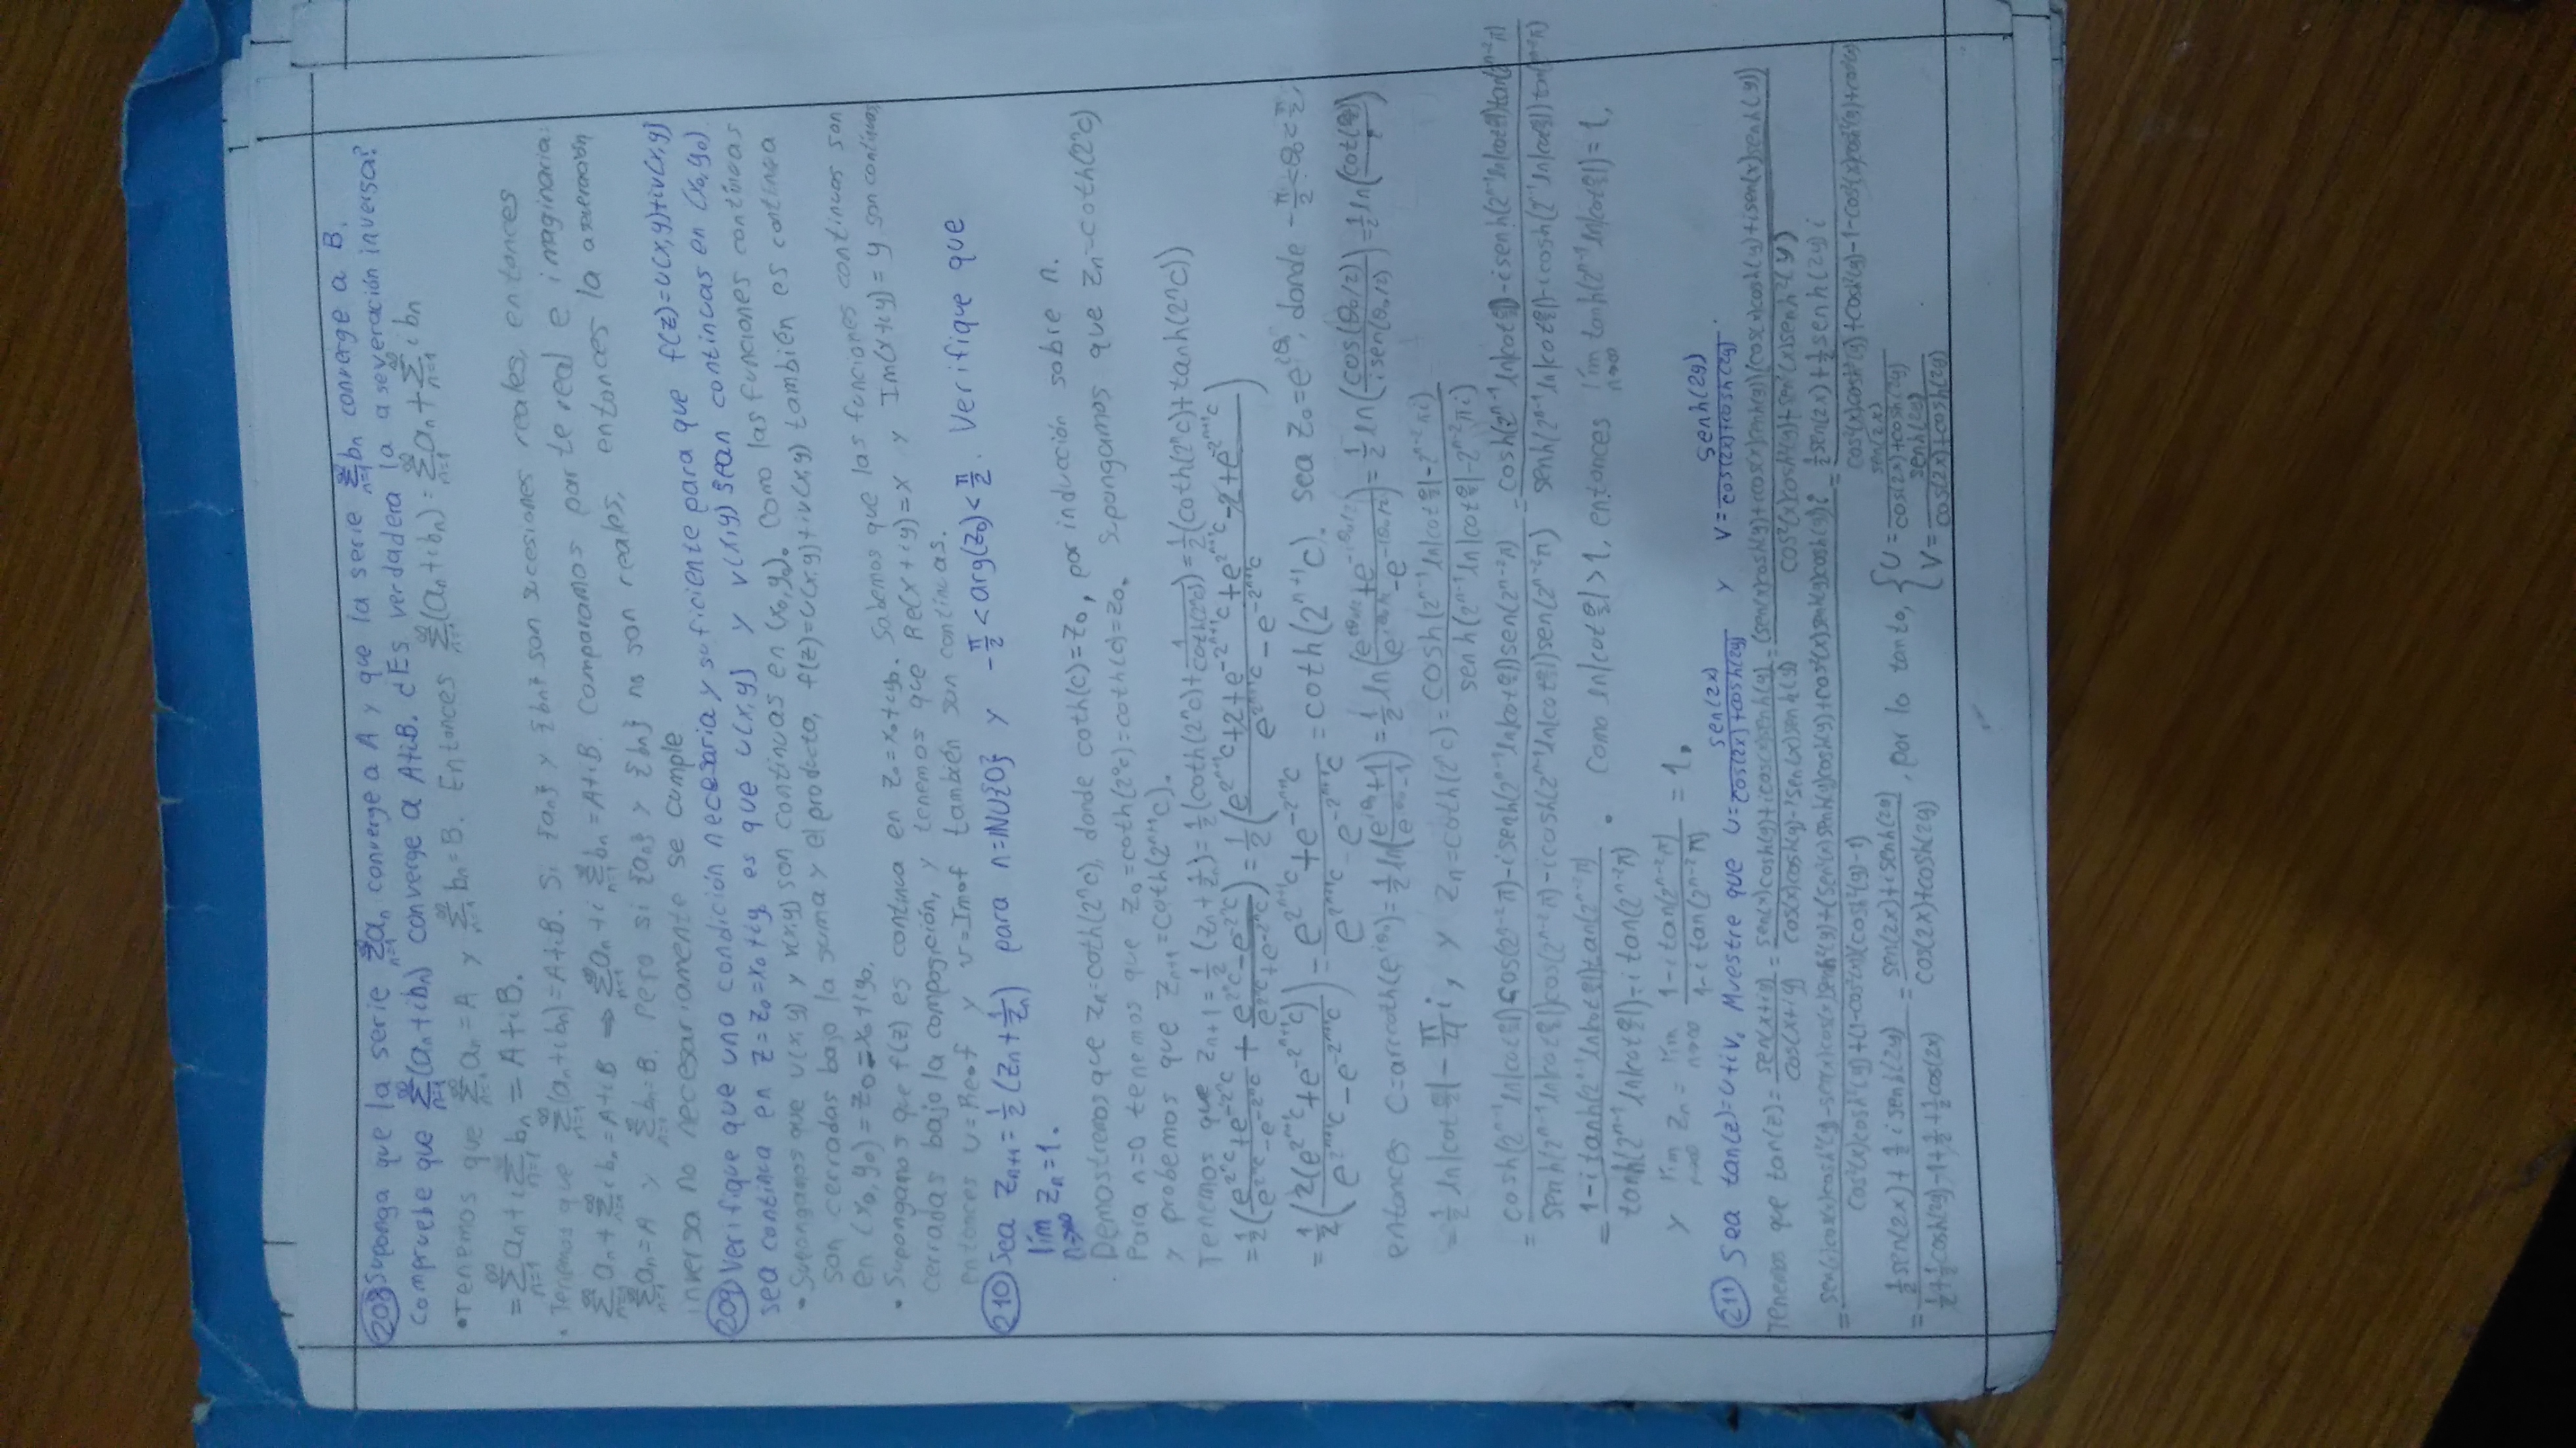 208 Suponga que la serie ∑_{n=1}^∞ a_n converge a A y que la serie ∑_{n=1}^∞ b_n converge a B.
Compruebe que ∑_{n=1}^∞ (a_n+ib_n) converge a A+iB. ¿Es verdadera la aseveración inversa?
• Tenemos que ∑_{n=1}^∞ a_n = A y ∑_{n=1}^∞ b_n = B. Entonces ∑_{n=1}^∞ (a_n+ib_n) = ∑_{n=1}^∞ a_n + ∑_{n=1}^∞ i b_n
= ∑_{n=1}^∞ a_n + i ∑_{n=1}^∞ b_n = A+iB.
• Tenemos que ∑_{n=1}^∞ (a_n+ib_n) = A+iB. Si {a_n} y {b_n} son sucesiones reales, entonces
∑_{n=1}^∞ a_n + ∑_{n=1}^∞ i b_n = A+iB ⇒ ∑_{n=1}^∞ a_n + i ∑_{n=1}^∞ b_n = A+iB. Comparamos parte real e imaginaria:
∑_{n=1}^∞ a_n = A y ∑_{n=1}^∞ b_n = B. Pero si {a_n} y {b_n} no son reales, entonces la aseveración
inversa no necesariamente se cumple
209 Verifique que una condición necesaria y suficiente para que f(z)=u(x,y)+iv(x,y)
sea continua en z=z_0=x_0+iy_0 es que u(x,y) y v(x,y) sean continuas en (x_0,y_0).
• Supongamos que u(x,y) y v(x,y) son continuas en (x_0,y_0). Como las funciones continuas
son cerradas bajo la suma y el producto, f(z)=u(x,y)+iv(x,y) también es continua
en (x_0,y_0)=z_0=x_0+iy_0.
• Supongamos que f(z) es continua en z_0=x_0+iy_0. Sabemos que las funciones continuas son
cerradas bajo la composición, y tenemos que Re(x+iy)=x y Im(x+iy)=y son continuas,
entonces u=Re∘f y v=Im∘f también son continuas.
210 Sea z_{n+1} = 1/2 (z_n + 1/z_n) para n=ℕ∪{0} y -π/2 < arg(z_0) < π/2. Verifique que
lím_{n→∞} z_n = 1.
Demostremos que z_n=coth(2^n c), donde coth(c)=z_0, por inducción sobre n.
Para n=0 tenemos que z_0=coth(2^0 c)=coth(c)=z_0. Supongamos que z_n=coth(2^n c)
y probemos que z_{n+1}=coth(2^{n+1} c).
Tenemos que z_{n+1} = 1/2 (z_n + 1/z_n) = 1/2 (coth(2^n c) + 1/coth(2^n c)) = 1/2 (coth(2^n c)+tanh(2^n c))
= 1/2 ((e^{2^n c}+e^{-2^n c})/(e^{2^n c}-e^{-2^n c}) + (e^{2^n c}-e^{-2^n c})/(e^{2^n c}+e^{-2^n c})) = 1/2 ((e^{2^{n+1} c}+2+e^{-2^{n+1} c}+e^{2^{n+1} c}-2+e^{-2^{n+1} c})/(e^{2^{n+1} c}-e^{-2^{n+1} c}))
= 1/2 (2(e^{2^{n+1} c}+e^{-2^{n+1} c})/(e^{2^{n+1} c}-e^{-2^{n+1} c})) = (e^{2^{n+1} c}+e^{-2^{n+1} c})/(e^{2^{n+1} c}-e^{-2^{n+1} c}) = coth(2^{n+1} c). Sea z_0=e^{iθ_0}, donde -π/2<θ_0<π/2,
entonces c=arccoth(e^{iθ_0}) = 1/2 ln((e^{iθ_0}+1)/(e^{iθ_0}-1)) = 1/2 ln((e^{iθ_0/2}+e^{-iθ_0/2})/(e^{iθ_0/2}-e^{-iθ_0/2})) = 1/2 ln(cos(θ_0/2)/(i sen(θ_0/2))) = 1/2 ln(cot(θ_0/2)/i)
= 1/2 ln|cot θ_0/2| - π/4 i, y z_n=coth(2^n c) = cosh(2^{n-1} ln|cot θ_0/2| - 2^{n-2} πi)/senh(2^{n-1} ln|cot θ_0/2| - 2^{n-2} πi)
= (cosh(2^{n-1} ln|cot θ_0/2|)cos(2^{n-2} π) - i senh(2^{n-1} ln|cot θ_0/2|)sen(2^{n-2} π))/(senh(2^{n-1} ln|cot θ_0/2|)cos(2^{n-2} π) - i cosh(2^{n-1} ln|cot θ_0/2|)sen(2^{n-2} π)) = (cosh(2^{n-1} ln|cot θ_0/2|) - i senh(2^{n-1} ln|cot θ_0/2|)tan(2^{n-2} π))/(senh(2^{n-1} ln|cot θ_0/2|) - i cosh(2^{n-1} ln|cot θ_0/2|)tan(2^{n-2} π))
= (1 - i tanh(2^{n-1} ln|cot θ_0/2|)tan(2^{n-2} π))/(tanh(2^{n-1} ln|cot θ_0/2|) - i tan(2^{n-2} π)). Como ln|cot θ_0/2|>1, entonces lím_{n→∞} tanh(2^{n-1} ln|cot θ_0/2|)=1,
y lím_{n→∞} z_n = lím_{n→∞} (1 - i tan(2^{n-2} π))/(1 - i tan(2^{n-2} π)) = 1.
211 Sea tan(z)=u+iv. Muestre que u = sen(2x)/(cos(2x)+cosh(2y)) y v = senh(2y)/(cos(2x)+cosh(2y)).
Tenemos que tan(z) = sen(x+iy)/cos(x+iy) = (sen(x)cosh(y)+i cos(x)senh(y))/(cos(x)cosh(y)-i sen(x)senh(y)) = (sen(x)cosh(y)+i cos(x)senh(y))(cos(x)cosh(y)+i sen(x)senh(y))/(cos²(x)cosh²(y)+sen²(x)senh²(y))
= (sen(x)cos(x)cosh²(y)-sen(x)cos(x)senh²(y)+(sen²(x)senh(y)cosh(y)+cos²(x)senh(y)cosh(y))i)/(cos²(x)cosh²(y)+(1-cos²(x))(cosh²(y)-1)) = (1/2 sen(2x)+1/2 senh(2y) i)/(cos²(x)cosh²(y)+cosh²(y)-1-cos²(x)cosh²(y)+cos²(x))
= (1/2 sen(2x)+1/2 i senh(2y))/(1/2+1/2 cosh(2y)-1+1/2+1/2 cos(2x)) = (sen(2x)+i senh(2y))/(cos(2x)+cosh(2y)), por lo tanto, { u = sen(2x)/(cos(2x)+cosh(2y))
v = senh(2y)/(cos(2x)+cosh(2y))